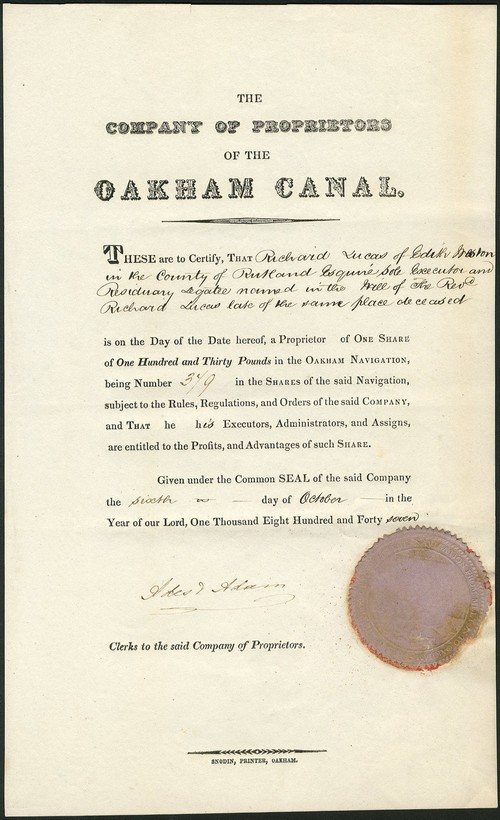 THE
COMPANY OF PROPRIETORS
OF THE
OAKHAM CANAL.
THESE are to Certify, THAT Richard Lucas of Edith Weston
in the County of Rutland Esquire Sole Executor and
Residuary Legatee named in the Will of The Revd
Richard Lucas late of the same place deceased
is on the Day of the Date hereof, a Proprietor of ONE SHARE
of One Hundred and Thirty Pounds in the OAKHAM NAVIGATION,
being Number 379 in the SHARES of the said Navigation,
subject to the Rules, Regulations, and Orders of the said COMPANY,
and THAT he his Executors, Administrators, and Assigns,
are entitled to the Profits, and Advantages of such SHARE.
Given under the Common SEAL of the said Company
the sixth day of October in the
Year of our Lord, One Thousand Eight Hundred and Forty seven
Adam
Clerks to the said Company of Proprietors.
SNODIN, PRINTER, OAKHAM.